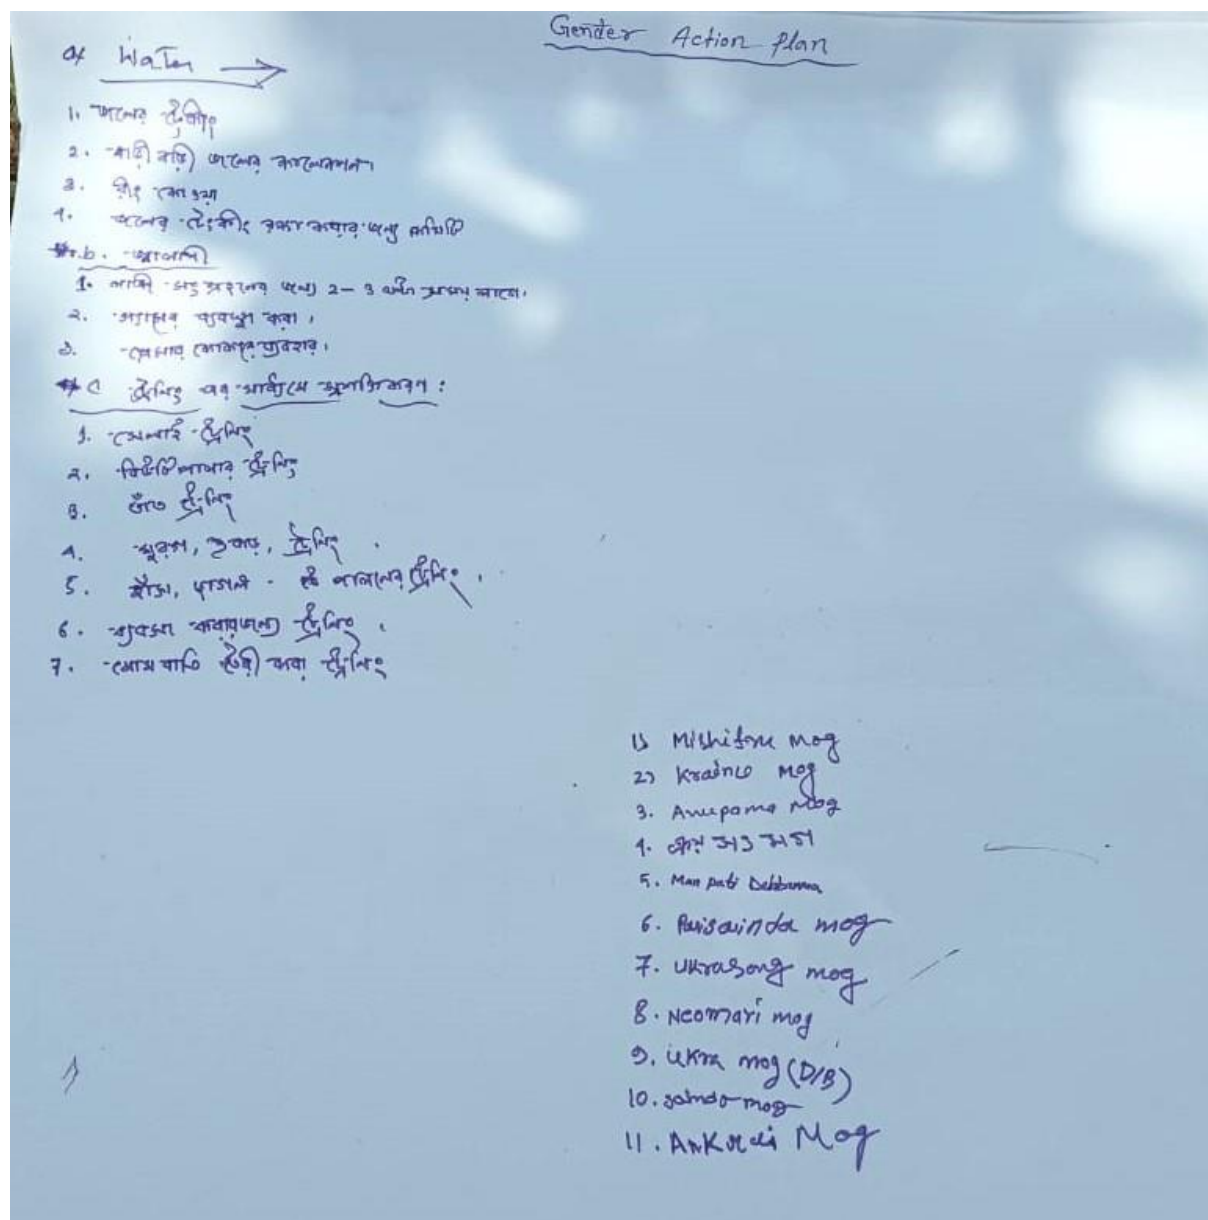 Gender Action Plan
a) Water →
1. জলের ট্রেংকীং
2. বাড়ী বাড়ি জলের কালেকশন।
3. রীং কুয়া
4. জলের টেংকীং রক্ষা করার জন্য কমিটি
b. জ্বালানী
1. লাকরি সংগ্রহনের জন্য 2-3 ঘন্টা সময় লাগে।
2. গ্যাসের ব্যবস্থা করা।
3. প্রেসার কোকার ব্যবহার।
C ট্রেনিং এর মাধ্যমে
1. সেলাই ট্রেনিং
2. বিউটি পালার ট্রেনিং
3. তাঁত ট্রেনিং
4. শূকর, ট্রেনিং
5. হাঁস, ছাগল পালনের ট্রেনিং,
6. ব্যবসা করার জন্য ট্রেনিং।
7. মোম বাতি তৈরী করা ট্রেনিং
1) Mog
2) Mog
3. Anupama Mog
4. মগ
5. Man Debbarma
6. Paisainda mog
7. Ukrasong mog
8. Neomari mog
9. Ukra mog (D/B)
10. Saindo mog
11. Mog